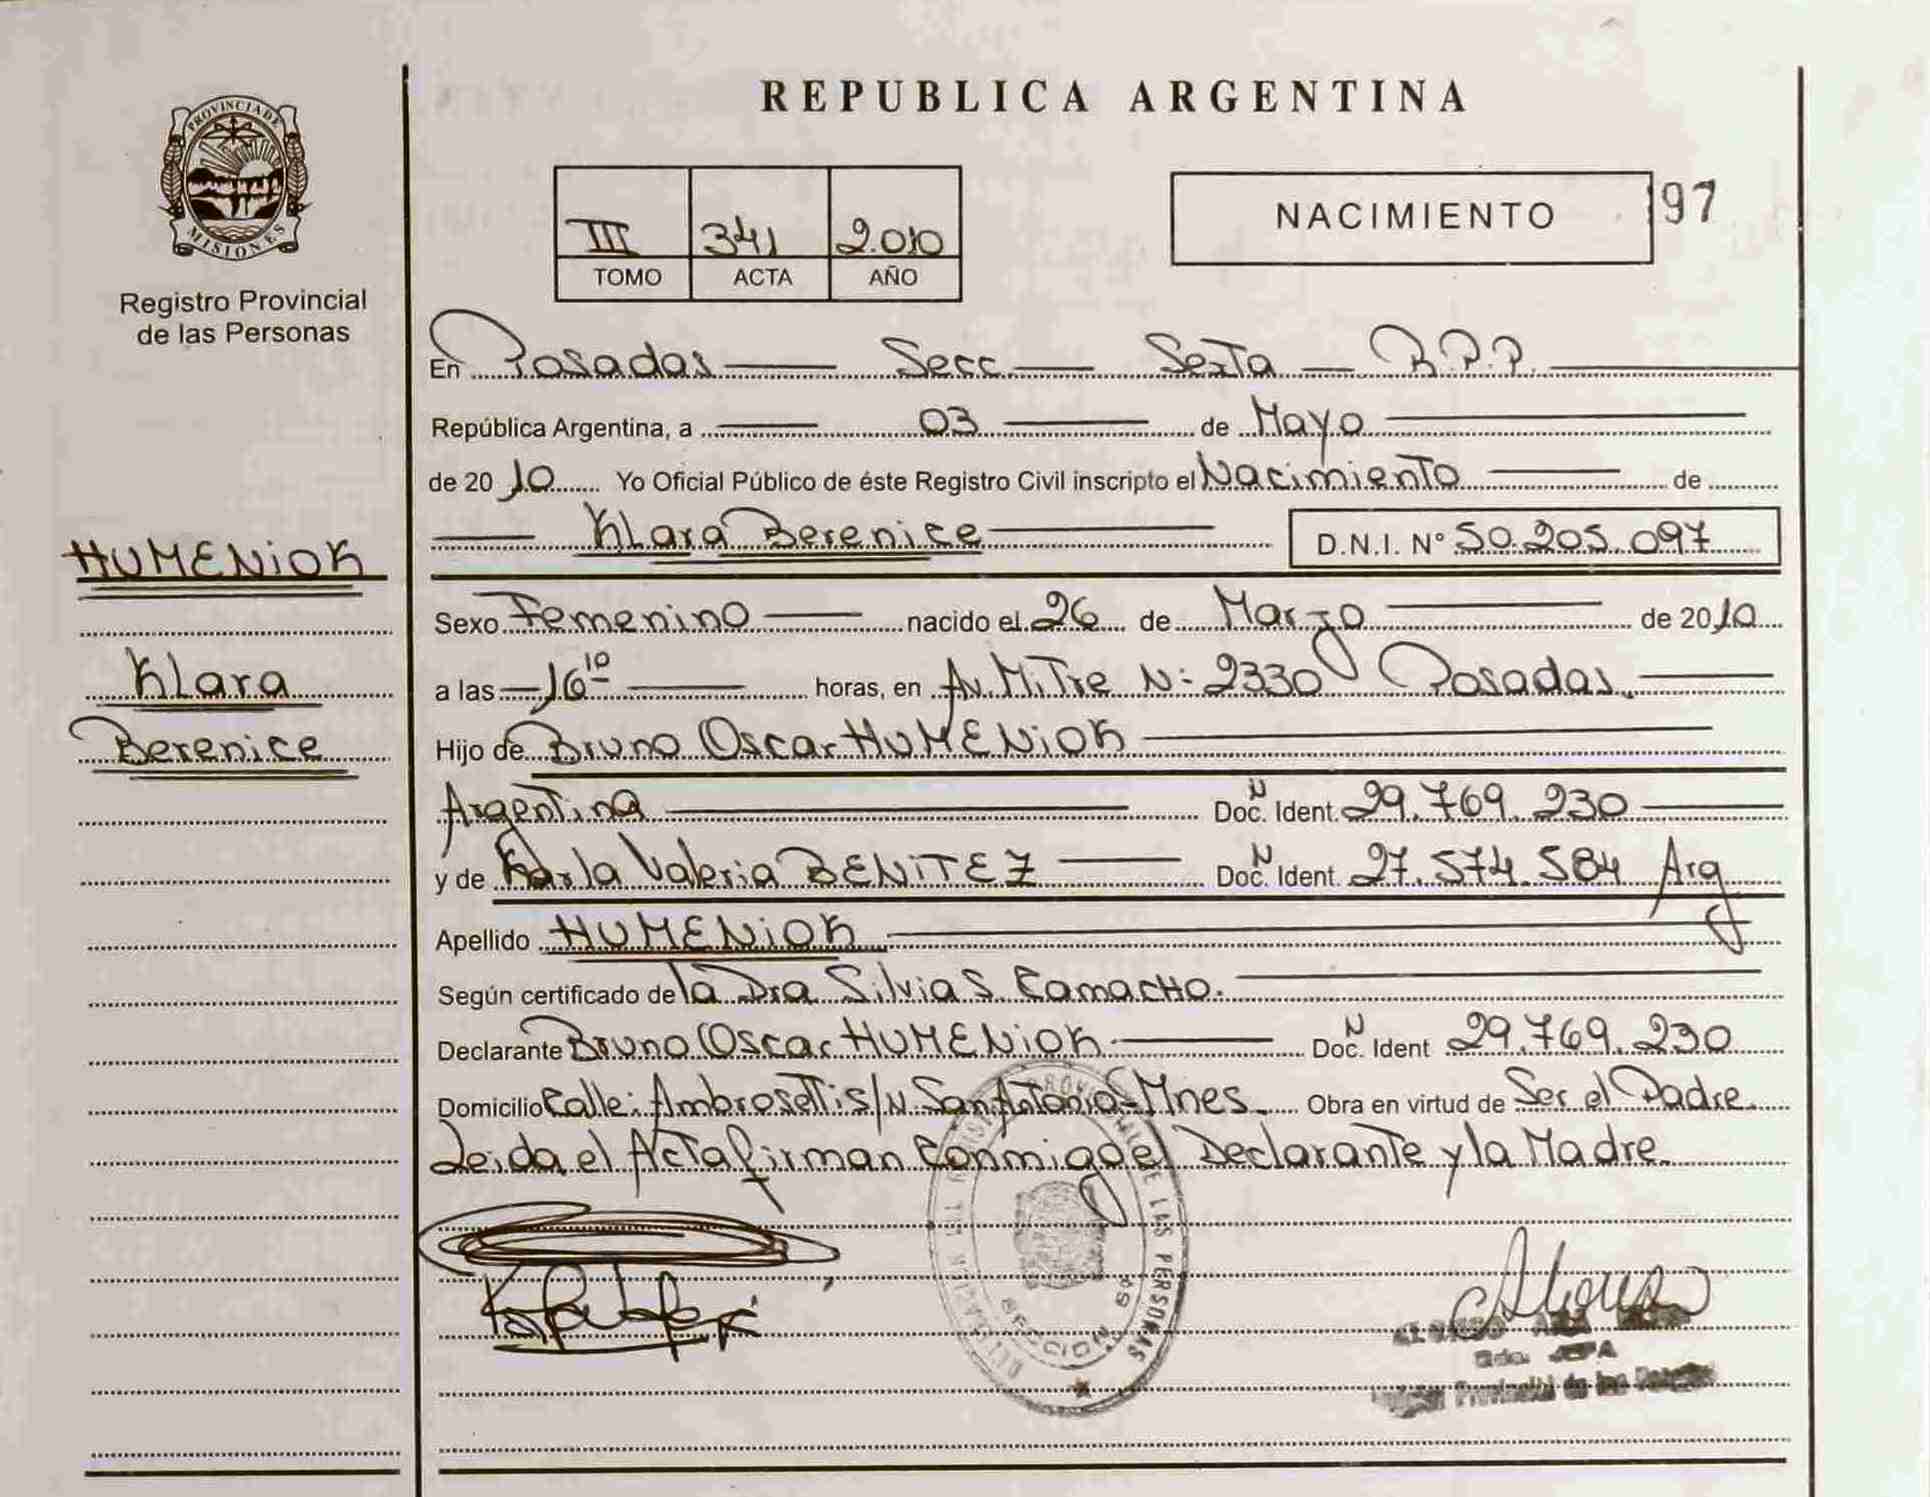 REPUBLICA ARGENTINA
PROVINCIA DE
MISIONES
Registro Provincial
de las Personas
III 341 2.010
TOMO ACTA AÑO
NACIMIENTO 97
En Posadas Secc. Sexta R.P.P.
República Argentina, a 03 de Mayo
de 20 10 Yo Oficial Público de éste Registro Civil inscripto el Nacimiento de
Klara Berenice D.N.I. N° 50.205.097
HUMENIOK
Klara
Berenice
Sexo Femenino nacido el 26 de Marzo de 20 10
a las 16 10 horas, en Av. Mitre N: 2330 Posadas.
Hijo de Bruno Oscar HUMENIOK
Argentina Doc. N Ident. 29.769.230
y de Karla Valeria BENITEZ Doc. N Ident. 27.574.584 Arg
Apellido HUMENIOK
Según certificado de la Dra Silvia S. Camacho.
Declarante Bruno Oscar HUMENIOK Doc. N Ident 29.769.230
Domicilio Calle: Ambrosetti s/N San Antonio - Mnes. Obra en virtud de Ser el Padre
Leida el Acta firman Conmigo el Declarante y la Madre.
DE LAS PERSONAS
SECCION
JEFA
Provincial de las